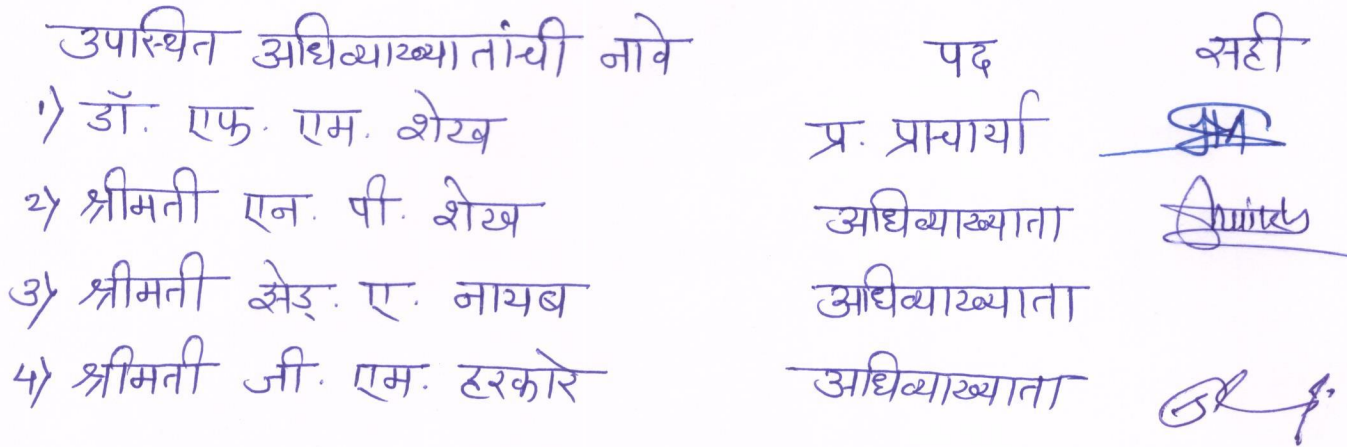 उपस्थित अधिव्याख्यातांची नावे पद सही
१) डॉ. एफ. एम. शेख प्र. प्राचार्या
२) श्रीमती एन. पी. शेख अधिव्याख्याता
३) श्रीमती झेड्. ए. नायब अधिव्याख्याता
४) श्रीमती जी. एम. हरकारे अधिव्याख्याता